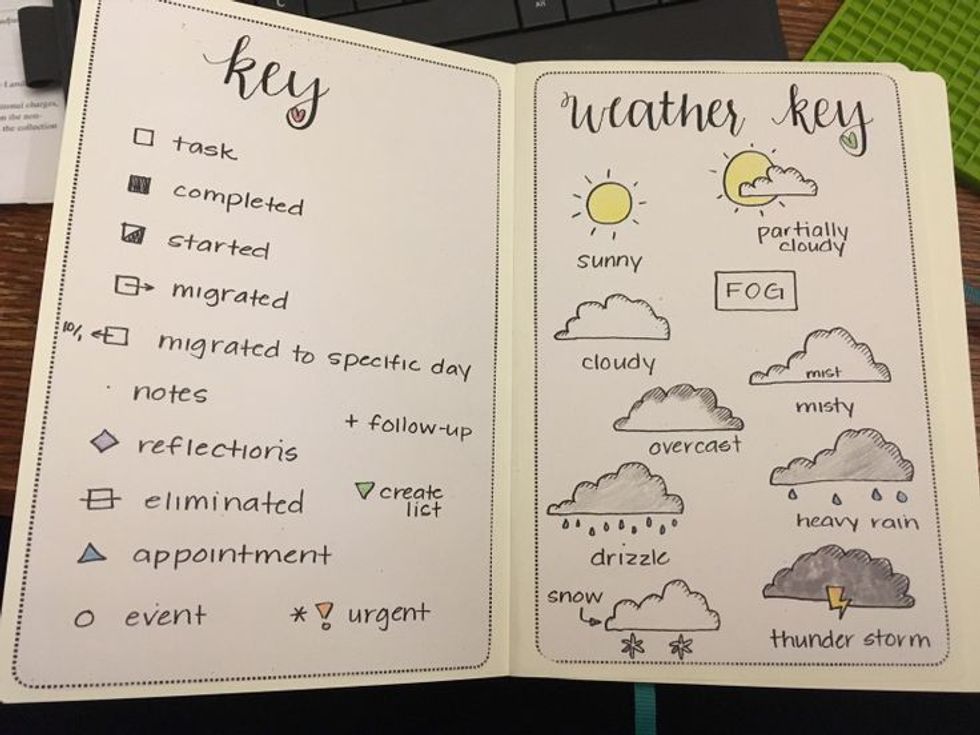 key
task
completed
started
migrated
10/, migrated to specific day
notes
+ follow-up
reflections
eliminated
create
list
appointment
event
*! urgent
weather key
sunny
partially
cloudy
FOG
cloudy
mist
misty
overcast
heavy rain
drizzle
snow
thunder storm
itional charges,
the collection